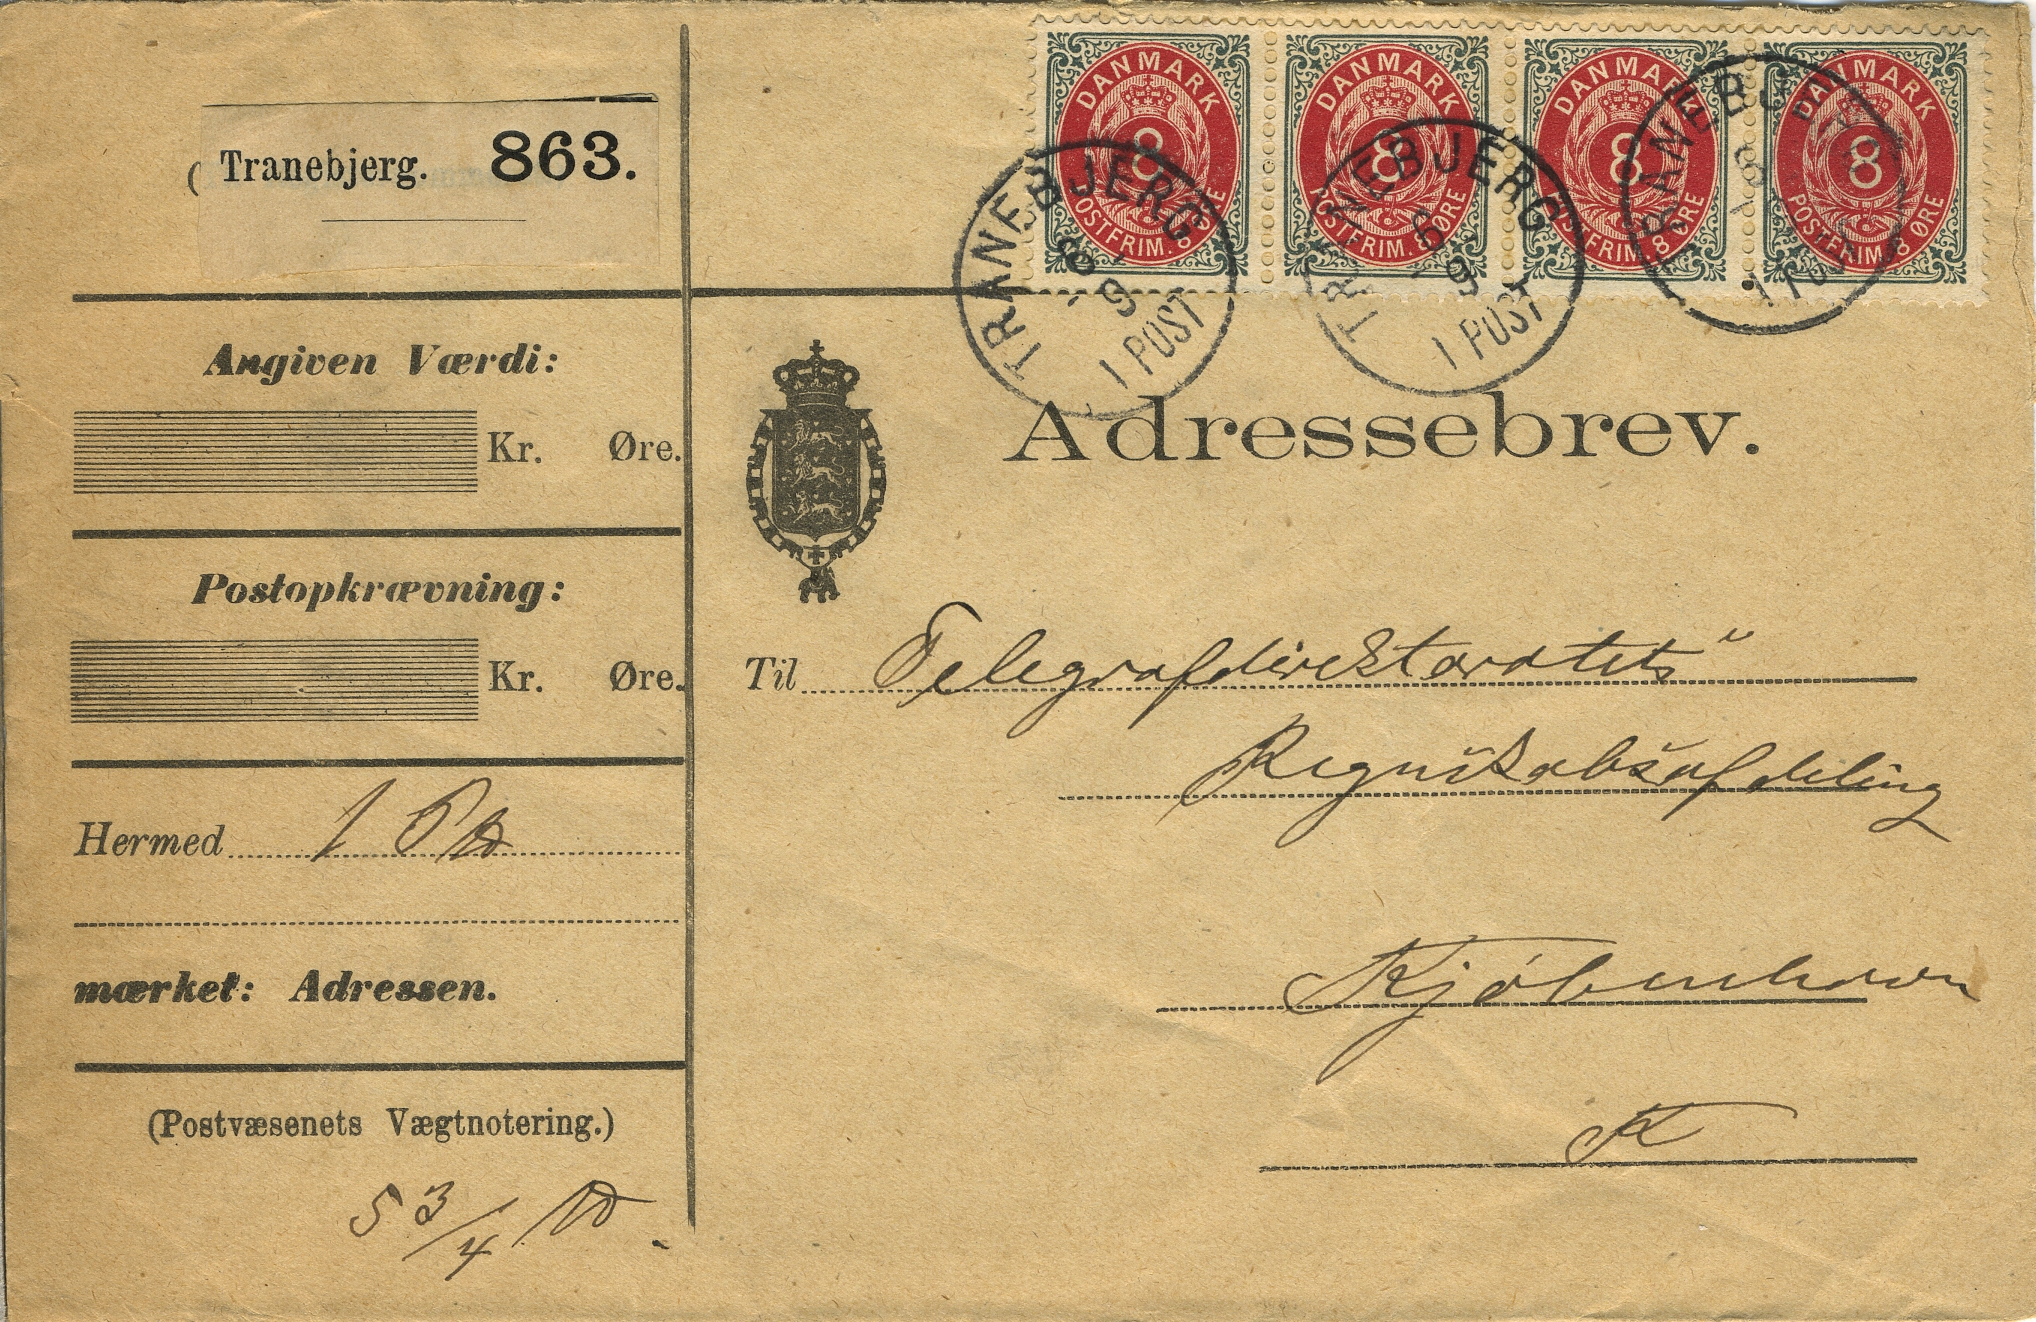 DANMARK 8 POSTFRIM. 8 ØRE
DANMARK 8 POSTFRIM. 8 ØRE
DANMARK 8 POSTFRIM. 8 ØRE
DANMARK 8 POSTFRIM. 8 ØRE
TRANEBJERG 9 1 POST
TRANEBJERG 9 1 POST
TRANEBJ
Tranebjerg. 863.
Angiven Værdi:
Kr. Øre.
Postopkrævning:
Kr. Øre.
Hermed 1
mærket: Adressen.
(Postvæsenets Vægtnotering.)
5 3/4 ℔
Adressebrev.
Til Telegrafdirektoratets
Regnskabsafdeling
Kjøbenhavn
K